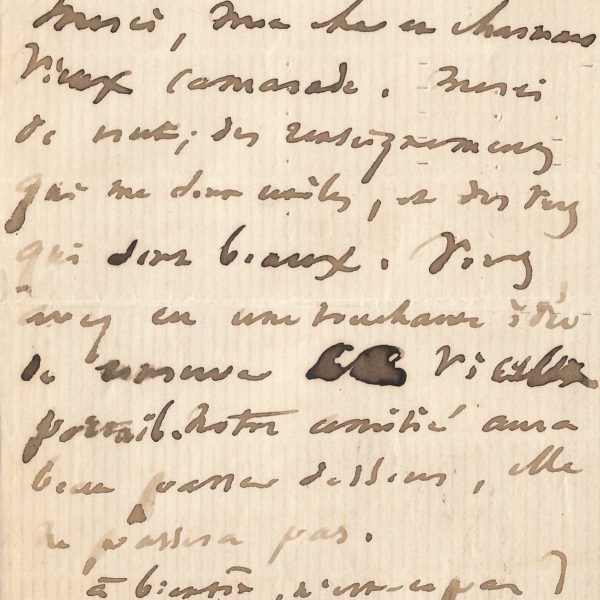 Merci, mon cher et charmant
vieux camarade. Merci
de tout; des renseignements
qui me sont utiles, et des vers
qui sont beaux. Vous
avez eu une touchante idée
de ce vieux
portrait. Notre amitié aura
beau passer dessous, elle
ne passera pas.
à bientôt, n'est-ce pas?